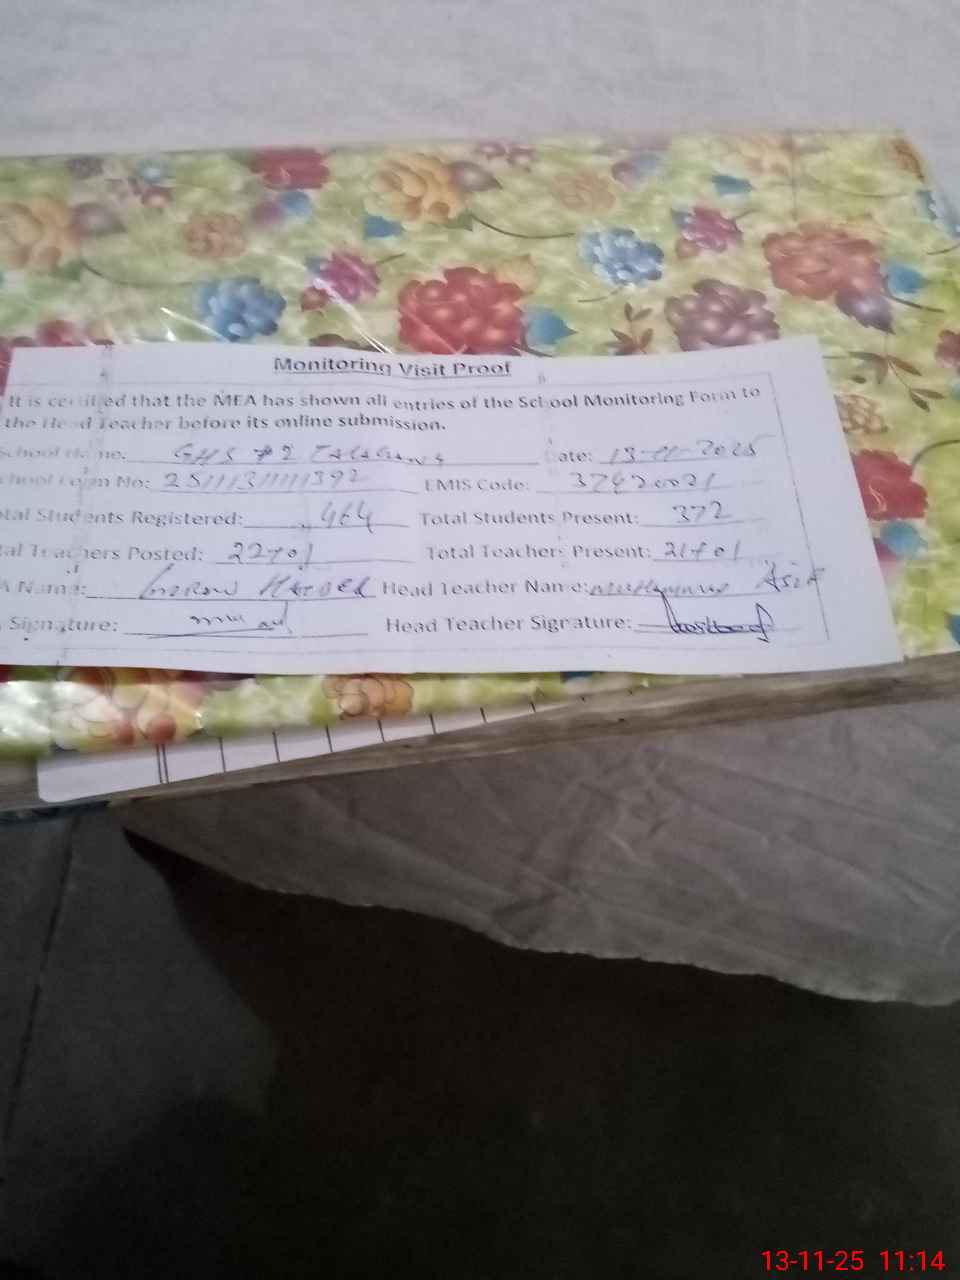 Monitoring Visit Proof
It is certified that the MEA has shown all entries of the School Monitoring Form to
the Head Teacher before its online submission.
School Name: GHS #2 Date: 13-11-2025
School Form No: EMIS Code:
Total Students Registered: 464 Total Students Present: 372
Total Teachers Posted: 22+01 Total Teachers Present: 21+01
A Name: Head Teacher Name: Asif
Signature: Head Teacher Signature:
13-11-25 11:14